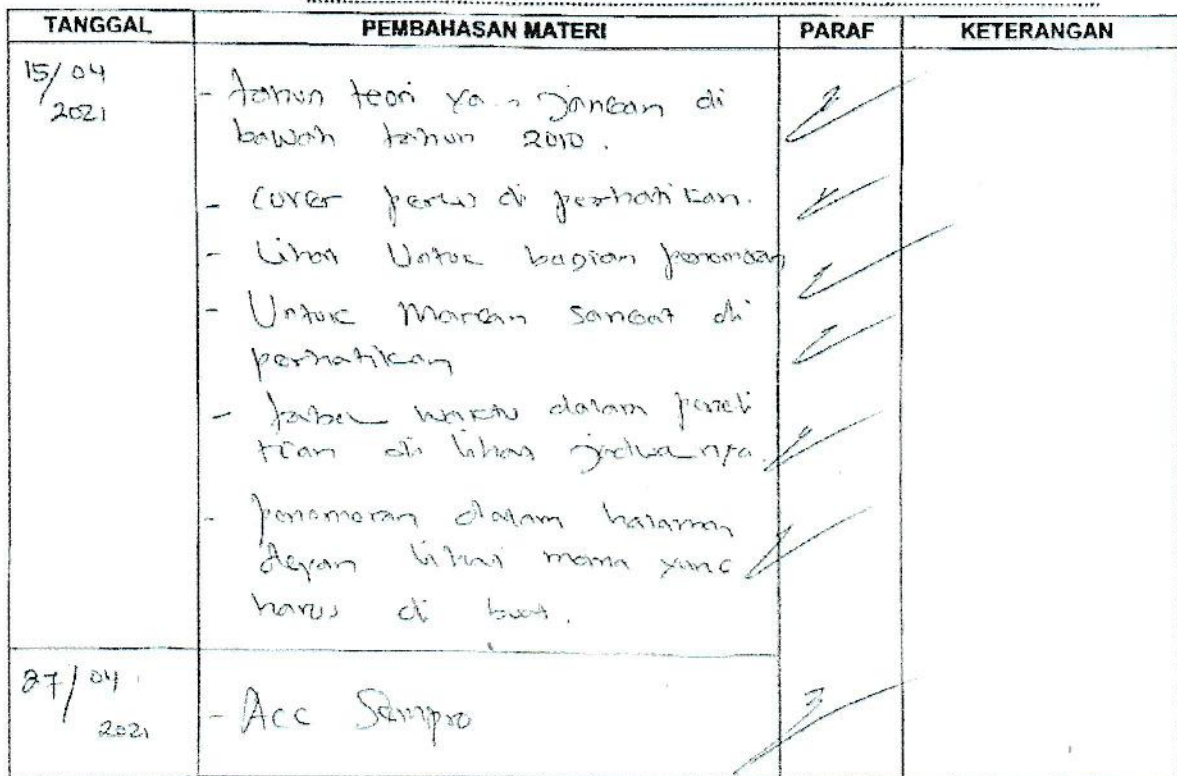 TANGGAL PEMBAHASAN MATERI PARAF KETERANGAN
15/04 2021
- tahun teori ya, jangan di
bawah tahun 2010.
- Cover perlu di perhatikan.
- Lihat Untuk bagian penomoran
- Untuk Margin sangat di
perhatikan
- tabel waktu dalam peneli
tian di lihat jadwalnya.
- penomoran dalam halaman
depan lihat mana yang
harus di buat.
27/04 2021
- Acc Sempro